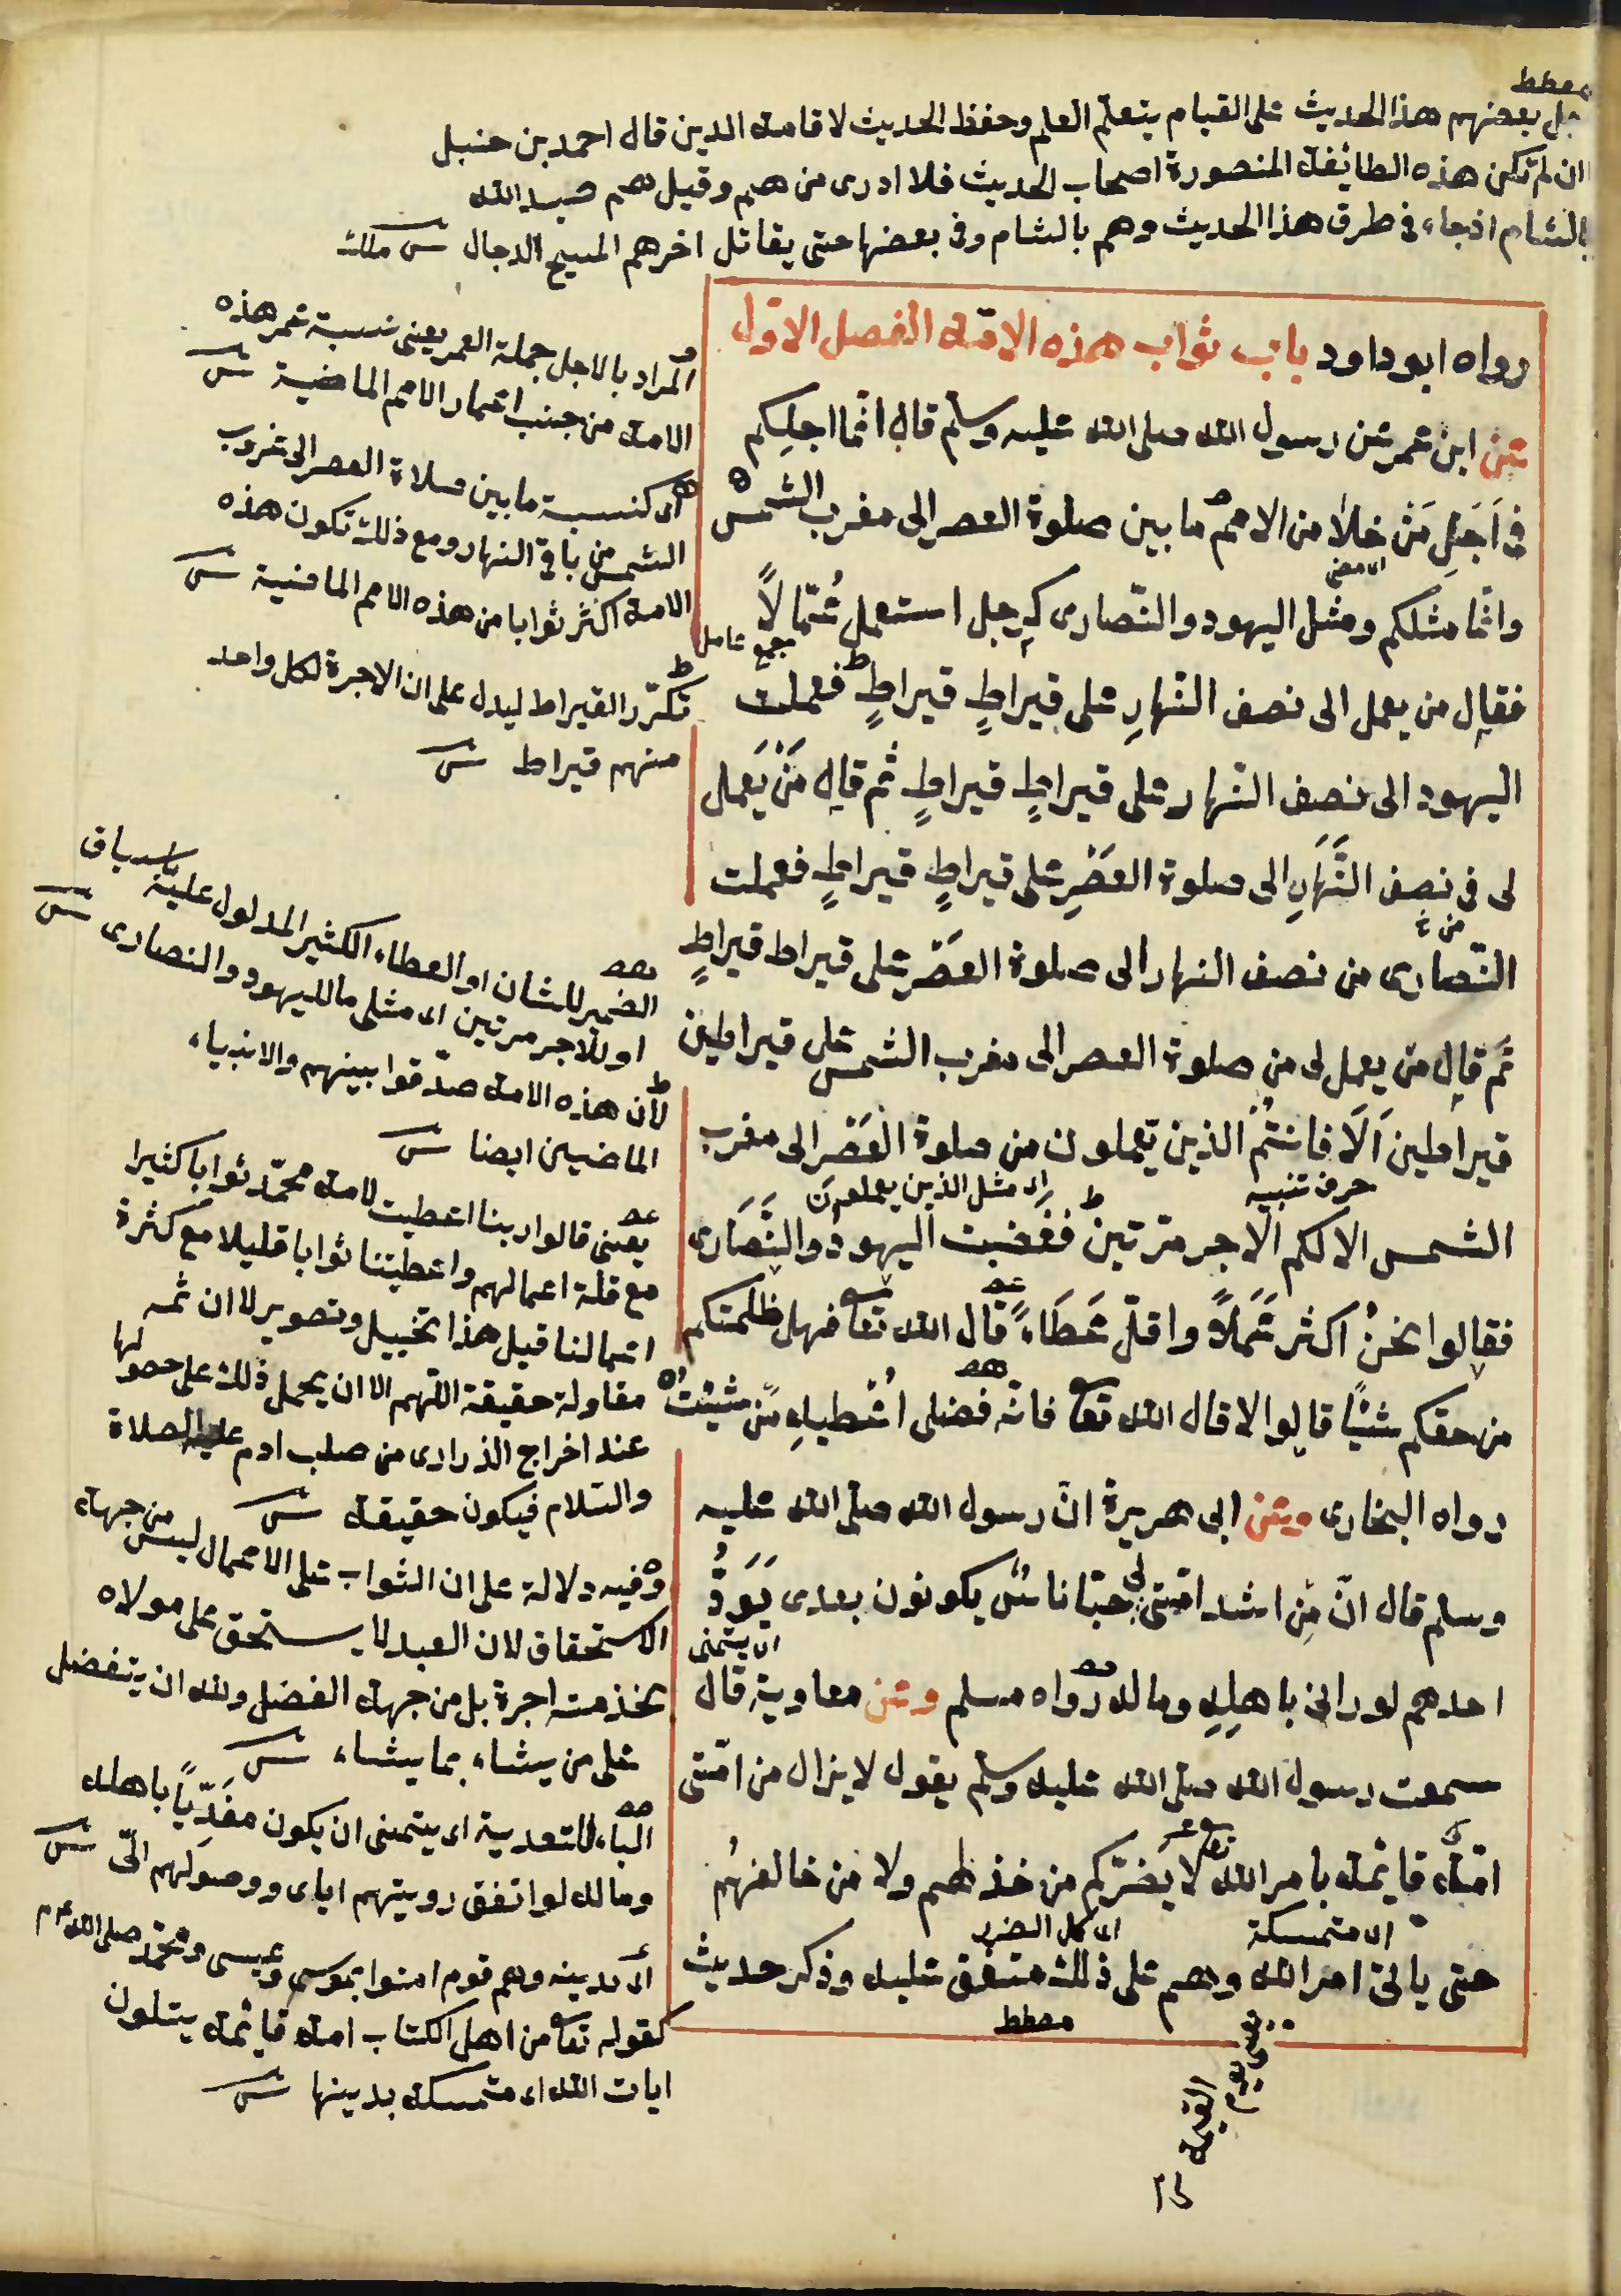 حمل بعضهم هذا الحديث على القيام بتعلم العلم وحفظ الحديث لاقامة الدين قال احمد بن حنبل
ان لم تكن هذه الطايفة المنصورة اصحاب الحديث فلا ادرى من هم وقيل هم
بالشام اذ جاء فى طرق هذا الحديث وهم بالشام وفى بعضها حتى يقاتل اخرهم المسيح الدجال
رواه ابو داود باب ثواب هذه الامة الفصل الاول
عن ابن عمر عن رسول الله صلى الله عليه وسلم قال انما اجلكم
فى اَجَلِ مَنْ خلا من الامم ما بين صلوة العصر الى مغرب الشمس
اى مضى
وانما مثلكم ومثل اليهود والنصارى كرجل استعمل عُمّالاً
جمع عامل
فقال من يعمل الى نصف النهارِ على قيراطٍ قيراطٍ فعملت
اليهود الى نصف النهار على قيراطٍ قيراطٍ ثم قال مَنْ يَعمل
لى فى نصف النَّهَارِ الى صلوة العَصْرِ على قيراطٍ قيراطٍ فعملت
النصارى من نصف النهار الى صلوة العَصْر على قيراط قيراطٍ
ثم قال من يعمل لى من صلوة العصر الى مغرب الشمس على قيراطين
قيراطين اَلَا فانتُمْ الذين تعملون من صلوة العَصْر الى مغرب
حرف تنبيه
اى مثل الذين يعملون
الشمس الا لكم الاجر مرتين فغضبت اليهود والنَّصَارى
فقالوا نحنُ اكثر عَمَلاً واقلّ عَطَاءً قال الله تعا فهل ظلمتكم
من حقكم شيئًا قالوا لا قال الله تعا فانّه فضلى اُعْطيهِ مَنْ شِئْتُ
رواه البخارى وعن ابى هريرة انّ رسول الله صلى الله عليه
وسلم قال انّ مِن اشد امّتى لى حبّا ناسٌ يكونون بعدى يَوَدُّ
اى يتمنى
احدهم لو رانى باهلِهِ وماله رواه مسلم وعن معاوية قال
سمعت رسول الله صلى الله عليه وسلم يقول لا يزال من امّتى
امّةٌ قائمة بامر الله تعا لا يَضرّكم من خذلهم ولا من خالفهُم
اى متمسكة
اى كل الضرر
حتى ياتى امر الله وهم على ذلك متفق عليه وذكر حديث
المراد بالاجل جملة العمر يعنى نسبة عمر هذه
الامة من جنب اعمار الامم الماضية
اى كنسبة ما بين صلاة العصر الى غروب
الشمس من باقى النهار ومع ذلك تكون هذه
الامة اكثر ثوابا من هذه الامم الماضية
تكرّر القيراط ليدل على ان الاجرة لكل واحد
منهم قيراط
الضمير للشان او العطاء الكثير المدلول عليه بالسياق
او للاجر مرتين اى مثلى ما لليهود والنصارى
لان هذه الامة صدّقوا بينهم والانبياء
الماضيين ايضا
يعنى قالوا ربنا اعطيت لامة محمّد ثوابا كثيرا
مع قلة اعمالهم واعطيتنا ثوابا قليلا مع كثرة
اعمالنا قيل هذا تخييل وتصوير لا ان ثمه
مقاولة حقيقة اللّهم الا ان يحمل ذلك على حصولها
عند اخراج الذرارى من صلب ادم عليه الصلاة
والسلام فيكون حقيقة
وفيه دلالة على ان الثواب على الاعمال ليس من جهة
الاستحقاق لان العبد لا يستحق على مولاه
بخذمته اجرة بل من جهة الفضل ولله ان يتفضل
على من يشاء بما يشاء
الباء للتعدية اى يتمنى ان يكون مفَدِّيًا باهله
وماله لو اتفق رويتهم اياى ووصولهم الىّ
اى مدينه وهم قوم امنوا بموسى وعيسى ومحمّد صلى الله
كقوله تعا من اهل الكتاب امة قائمة يتلون
ايات الله اى متمسكة بدينها
يوم القيمة